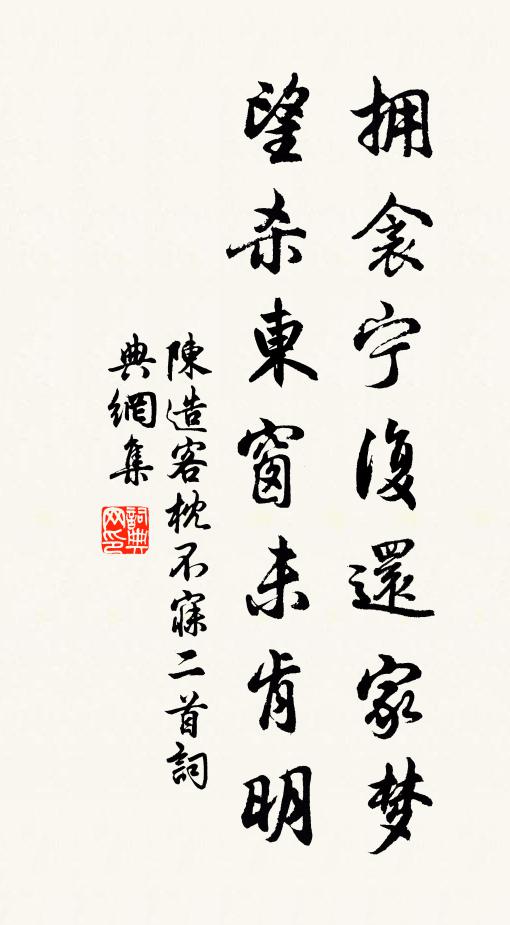 拥衾宁復還家梦
望杀東窗未肯明
陳造客枕不寐二首詞
典網集
詞典网印